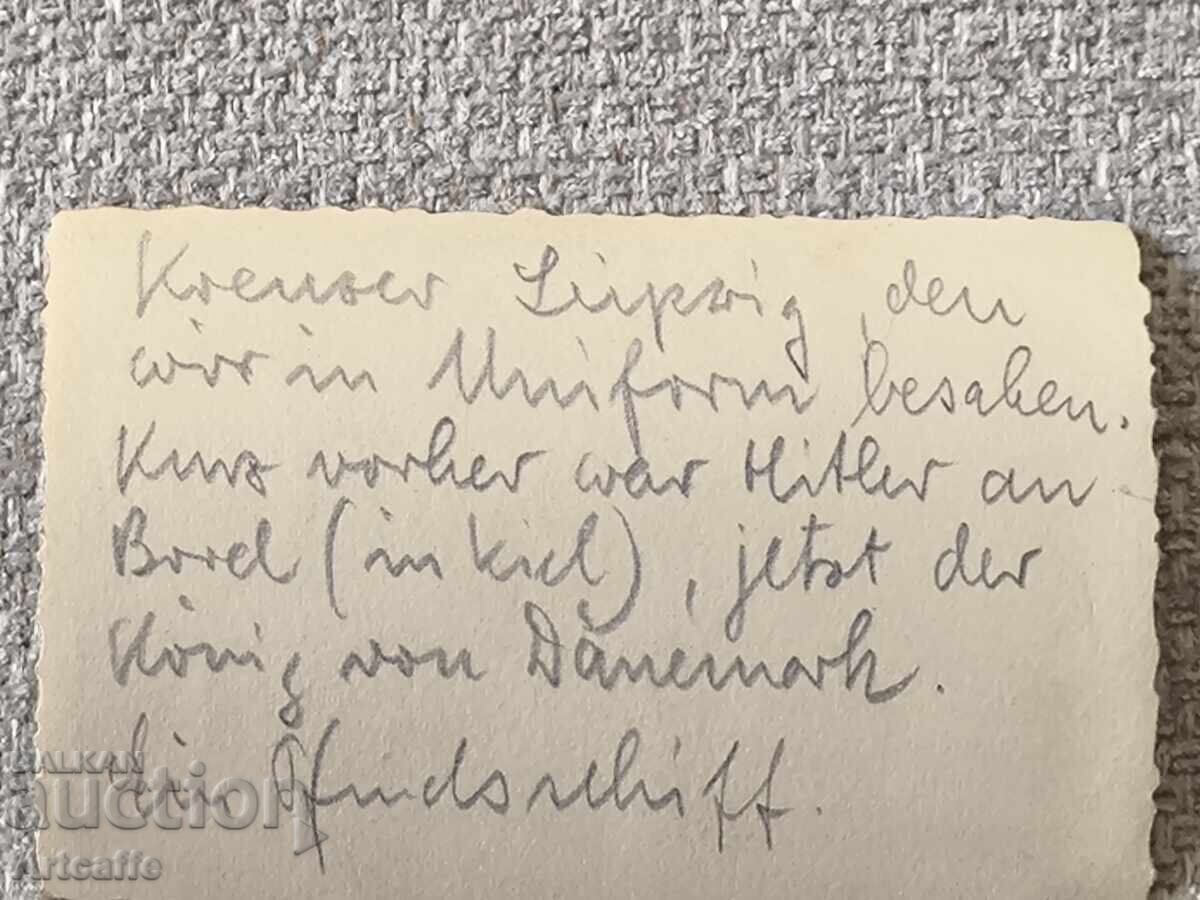 Kreuzer Leipzig, den
wir in Uniform besahen.
Kurz vorher war Hitler an
Bord (in Kiel), jetzt der
König von Dänemark.
Ein
BALKAN
auction
Artcaffe